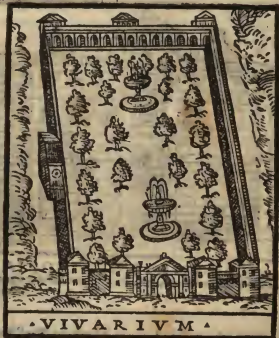 ·VIVARIVM·